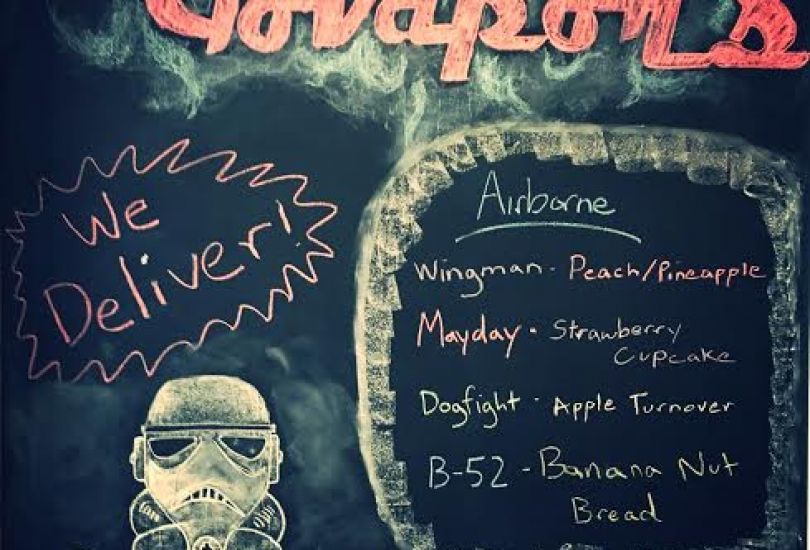 We
Deliver!
Airborne
Wingman - Peach/Pineapple
Mayday - Strawberry
Cupcake
Dogfight - Apple Turnover
B-52 - Banana Nut
Bread